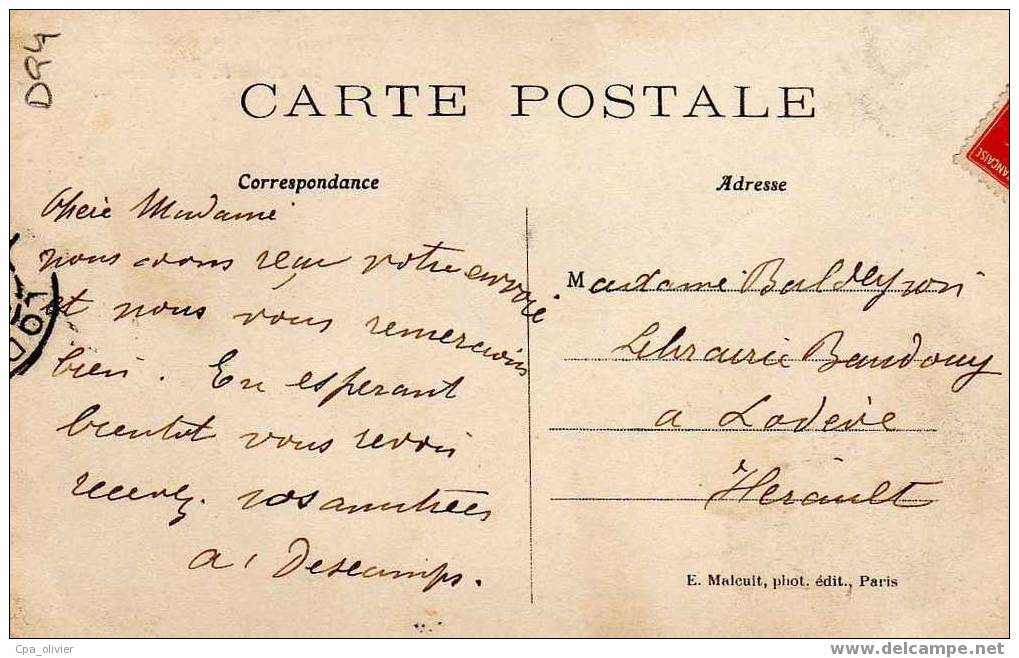 D94
CARTE POSTALE
Correspondance
Chere Madame
nous avons reçu votre envoie
et nous vous remercions
bien. En esperant
bientot vous revoir
recevez. nos amitiées
A, Descamps.
Adresse
Madame Baldeyron
Librairie Baudouy
a Lodève
Herault
E. Malcuit, phot. édit., Paris
FRANÇAISE
LOD
Cpa_olivier
www.delcampe.net